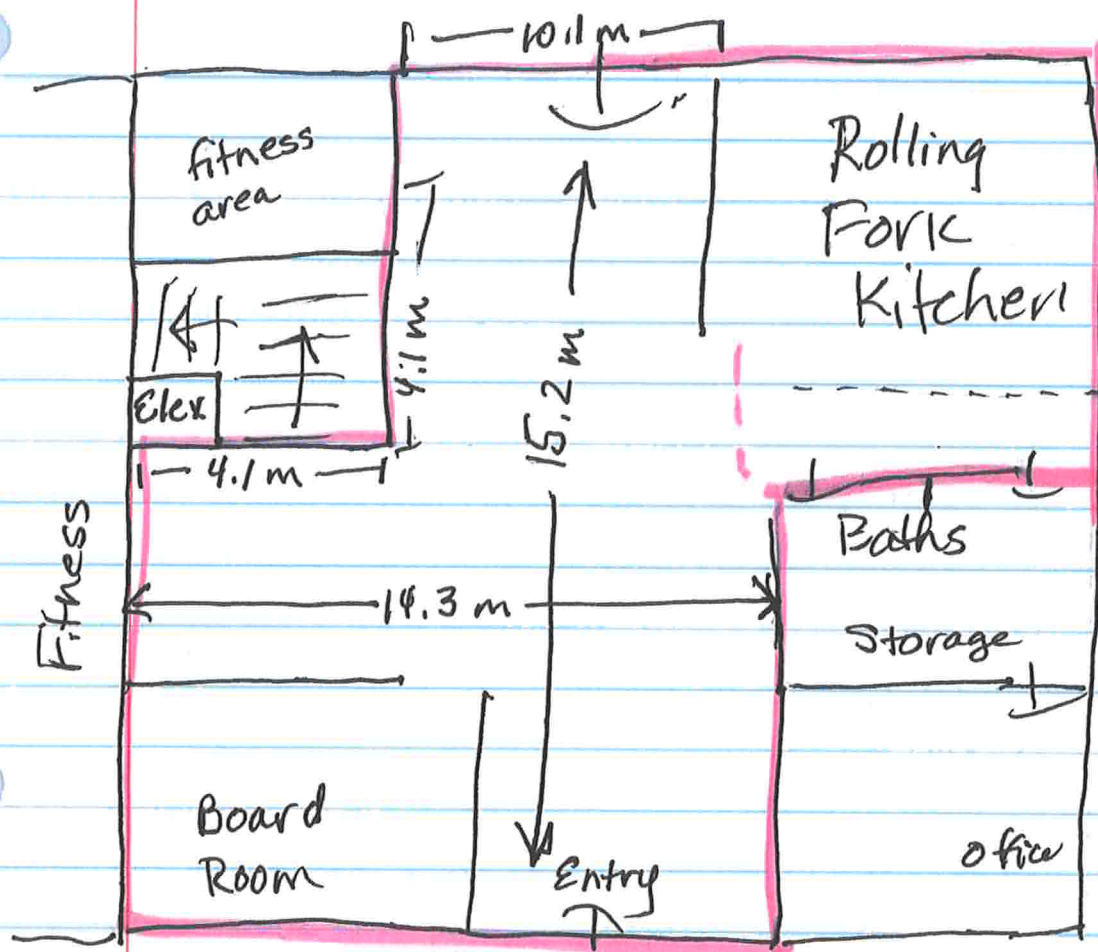 10.1 m
fitness
area
Rolling
Fork
Kitchen
4.1 m
15.2 m
Elev
4.1 m
Baths
Fitness
14.3 m
Storage
Board
Room
Entry
Office